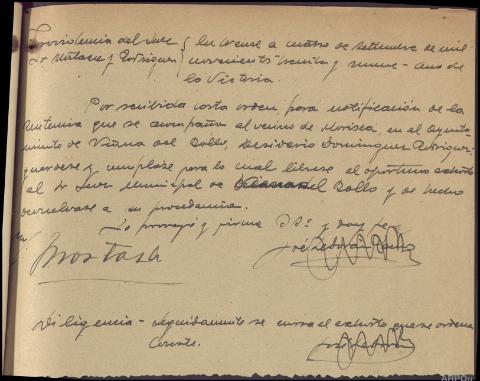 Providencia del Juez { En Orense a cuatro de Setiembre de mil
Sr. y Rodriguez { novecientos treinta y nueve - Año de
la Victoria.
Por recibida carta orden, para notificación de la
sentencia que se acompaña al vecino de en el Ayunta-
miento de Viana del Bollo, Desiderio Dominguez Rodriguez
guardese y cumplase para lo cual librese el oportuno exhorto
al Sr. Juez Municipal de Viana del Bollo y de hecho
devuelvase a su procedencia.
Lo proveyó y firma S.Sª. y doy fe
Diligencia - Seguidamente se cursa el exhorto que se ordena
Conste.
AHPOu